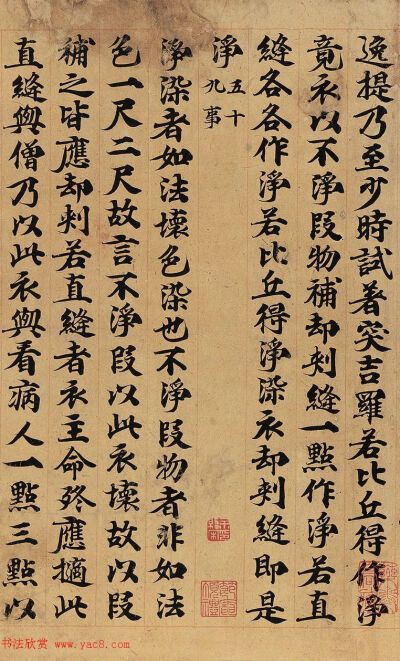 逸提乃至少時試著突吉羅若比丘得作淨
竟衣以不淨段物補却刾縫一點作淨若直
縫各各作淨若比丘得淨染衣却刾縫即是
淨 五十九事
淨染者如法壞色染也不淨段物者非如法
色一尺二尺故言不淨段以此衣壞故以段
補之皆應却刾若直縫者衣主命終應擿此
直縫與僧乃以此衣與看病人一點三點以
书法欣赏 www.yac8.com